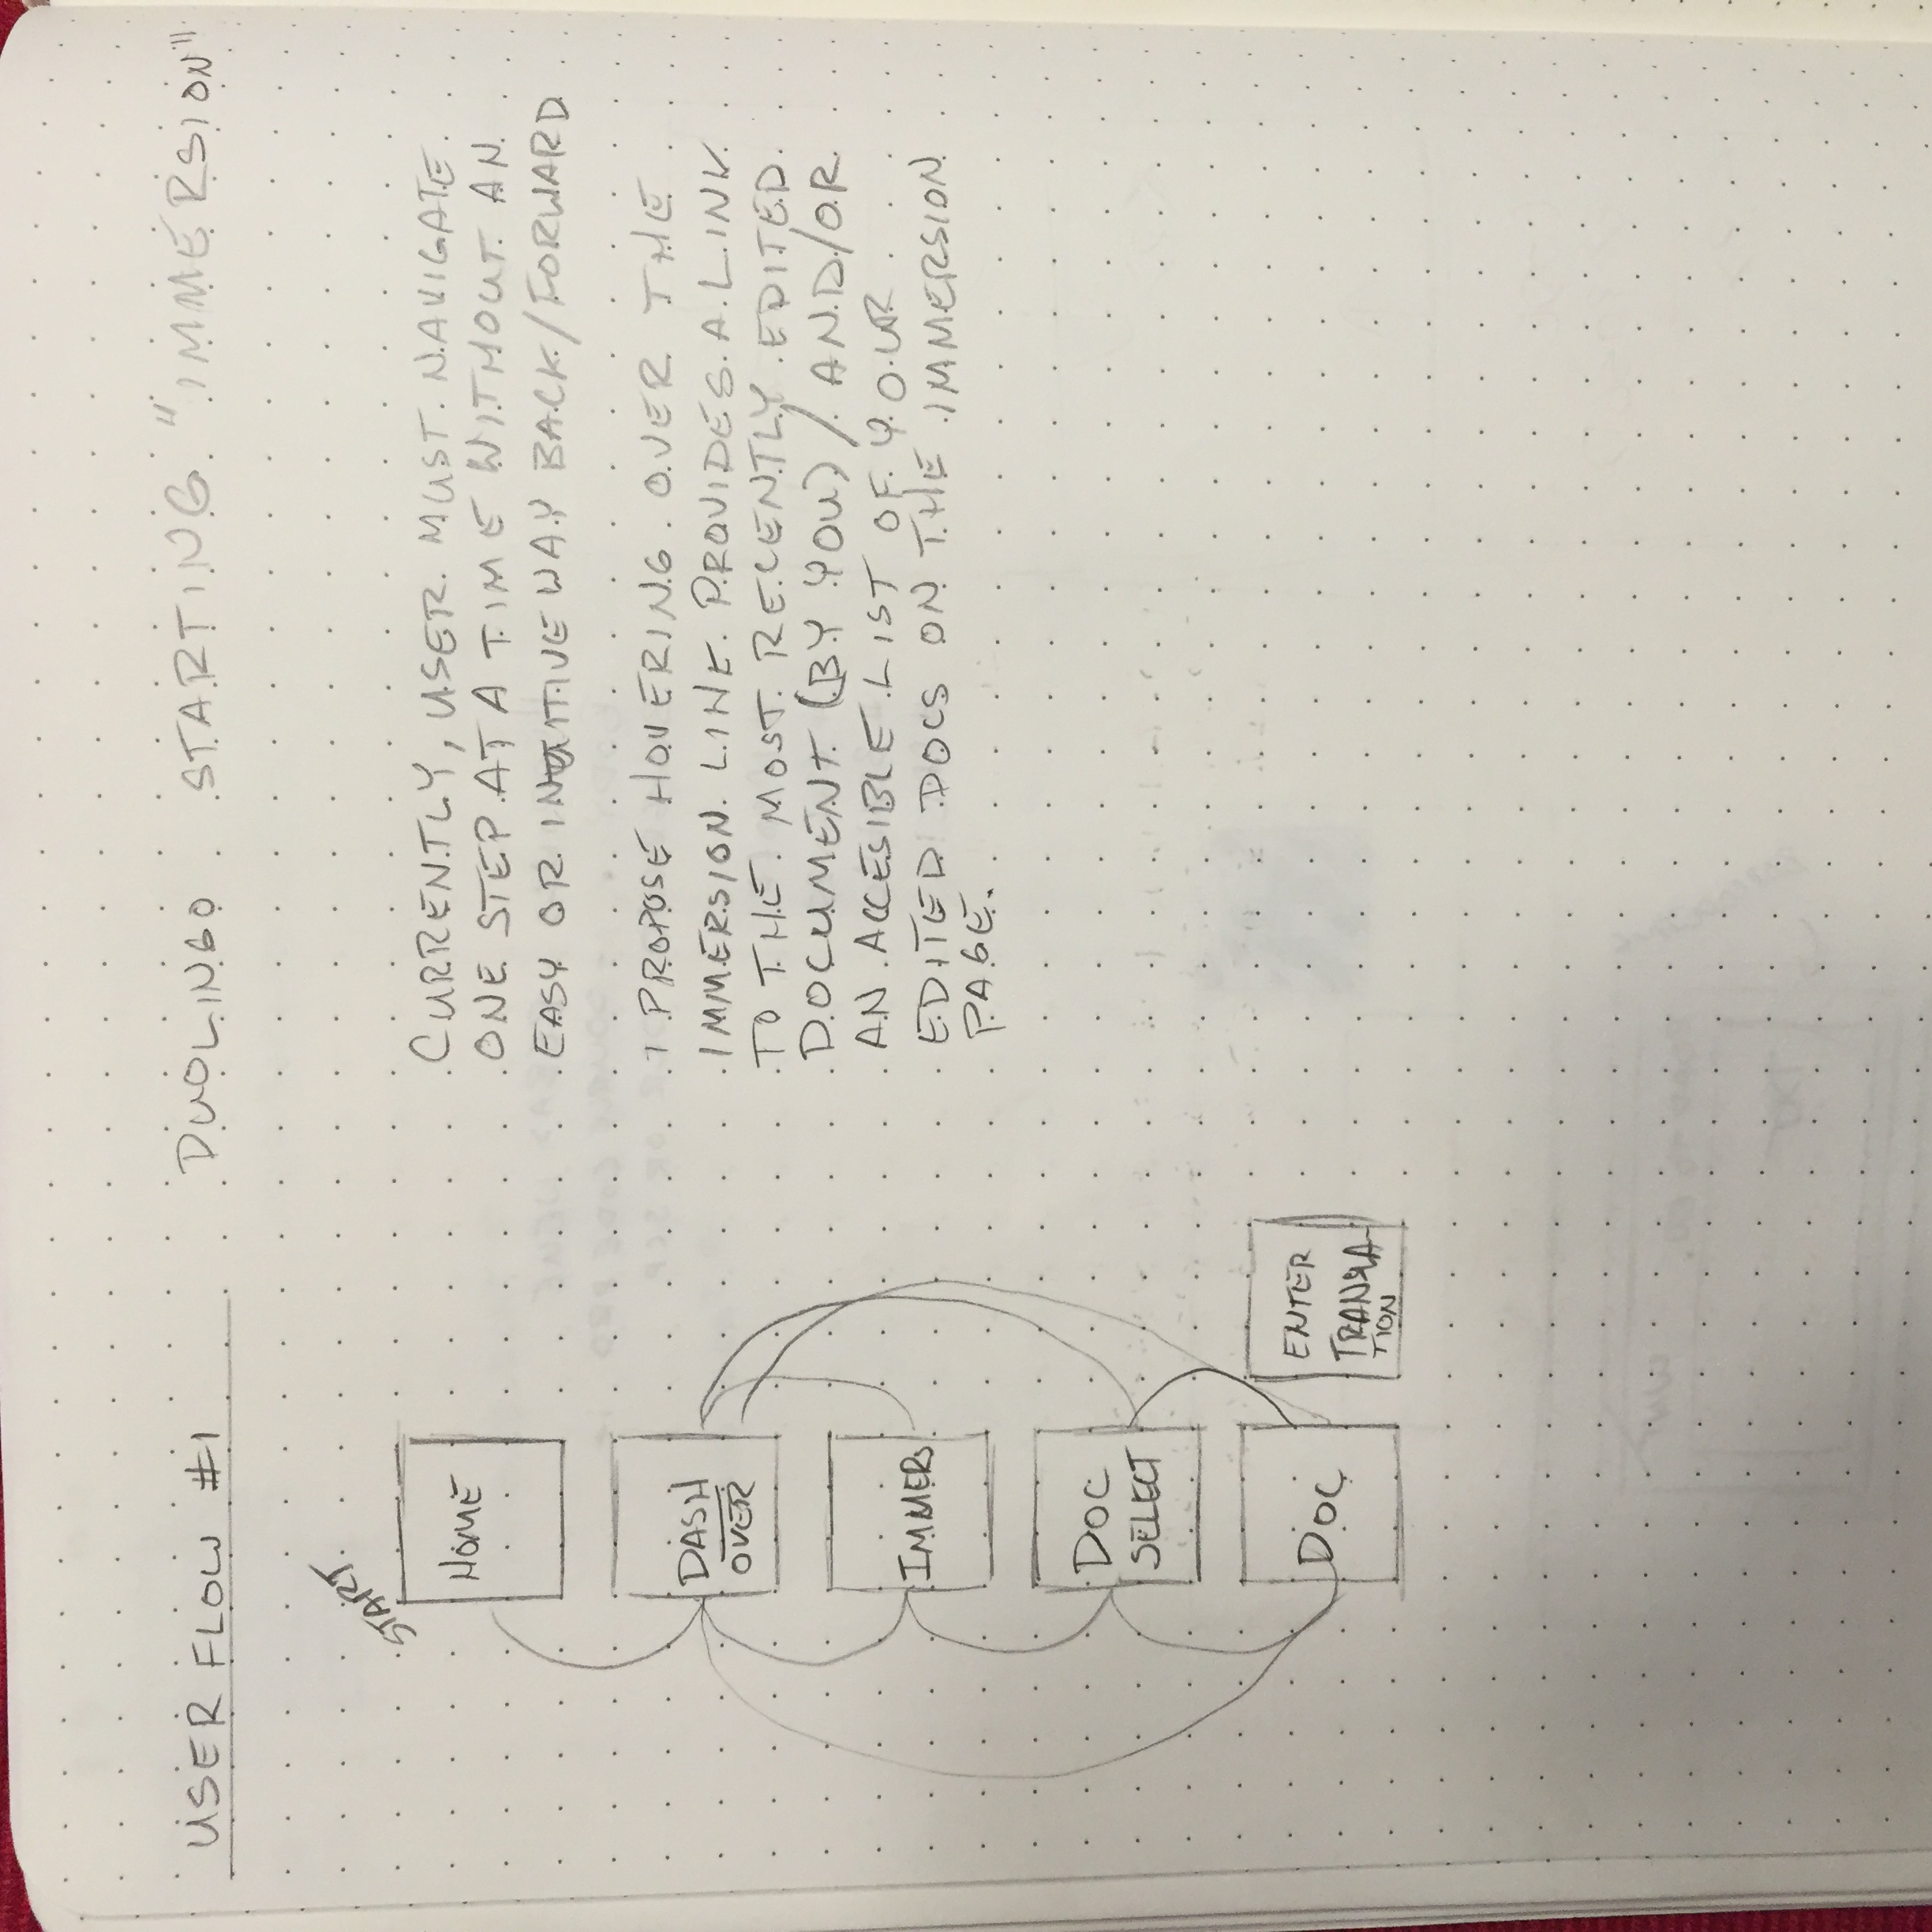 USER FLOW #1 DUOLINGO STARTING "IMMERSION"
START
HOME
DASH
OVER
IMMERS
DOC
SELECT
DOC
ENTER
TRANSLA-
TION
CURRENTLY, USER MUST NAVIGATE
ONE STEP AT A TIME WITHOUT AN
EASY OR INTUITIVE WAY BACK/FORWARD
I PROPOSE HOVERING OVER THE
IMMERSION LINK PROVIDES A LINK
TO THE MOST RECENTLY EDITED
DOCUMENT (BY YOU) / AND/OR
AN ACCESIBLE LIST OF YOUR
EDITED DOCS ON THE IMMERSION
PAGE.